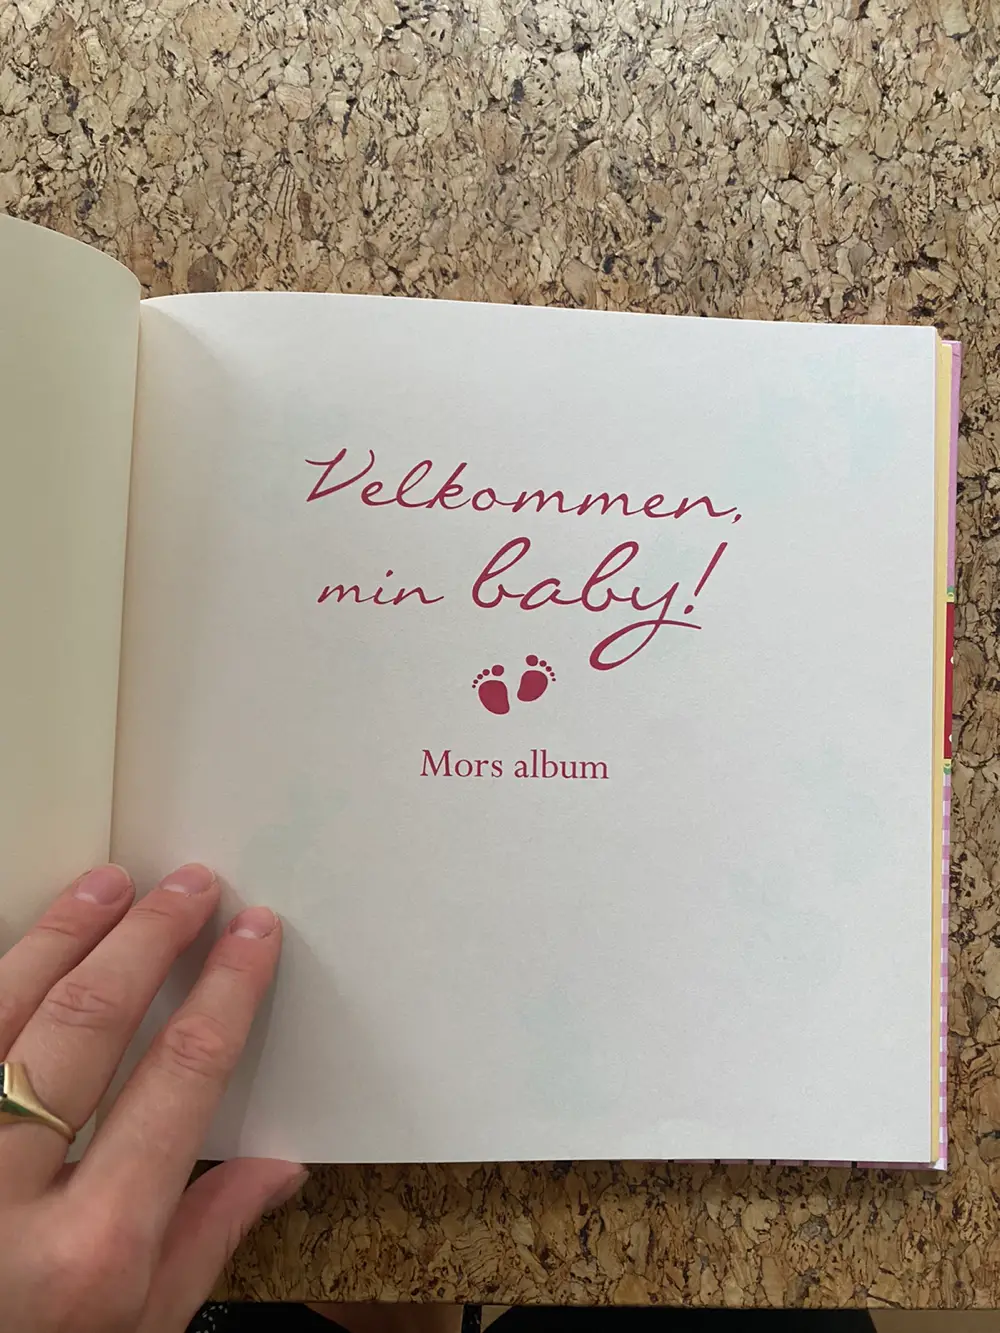 Velkommen,
min baby!
Mors album